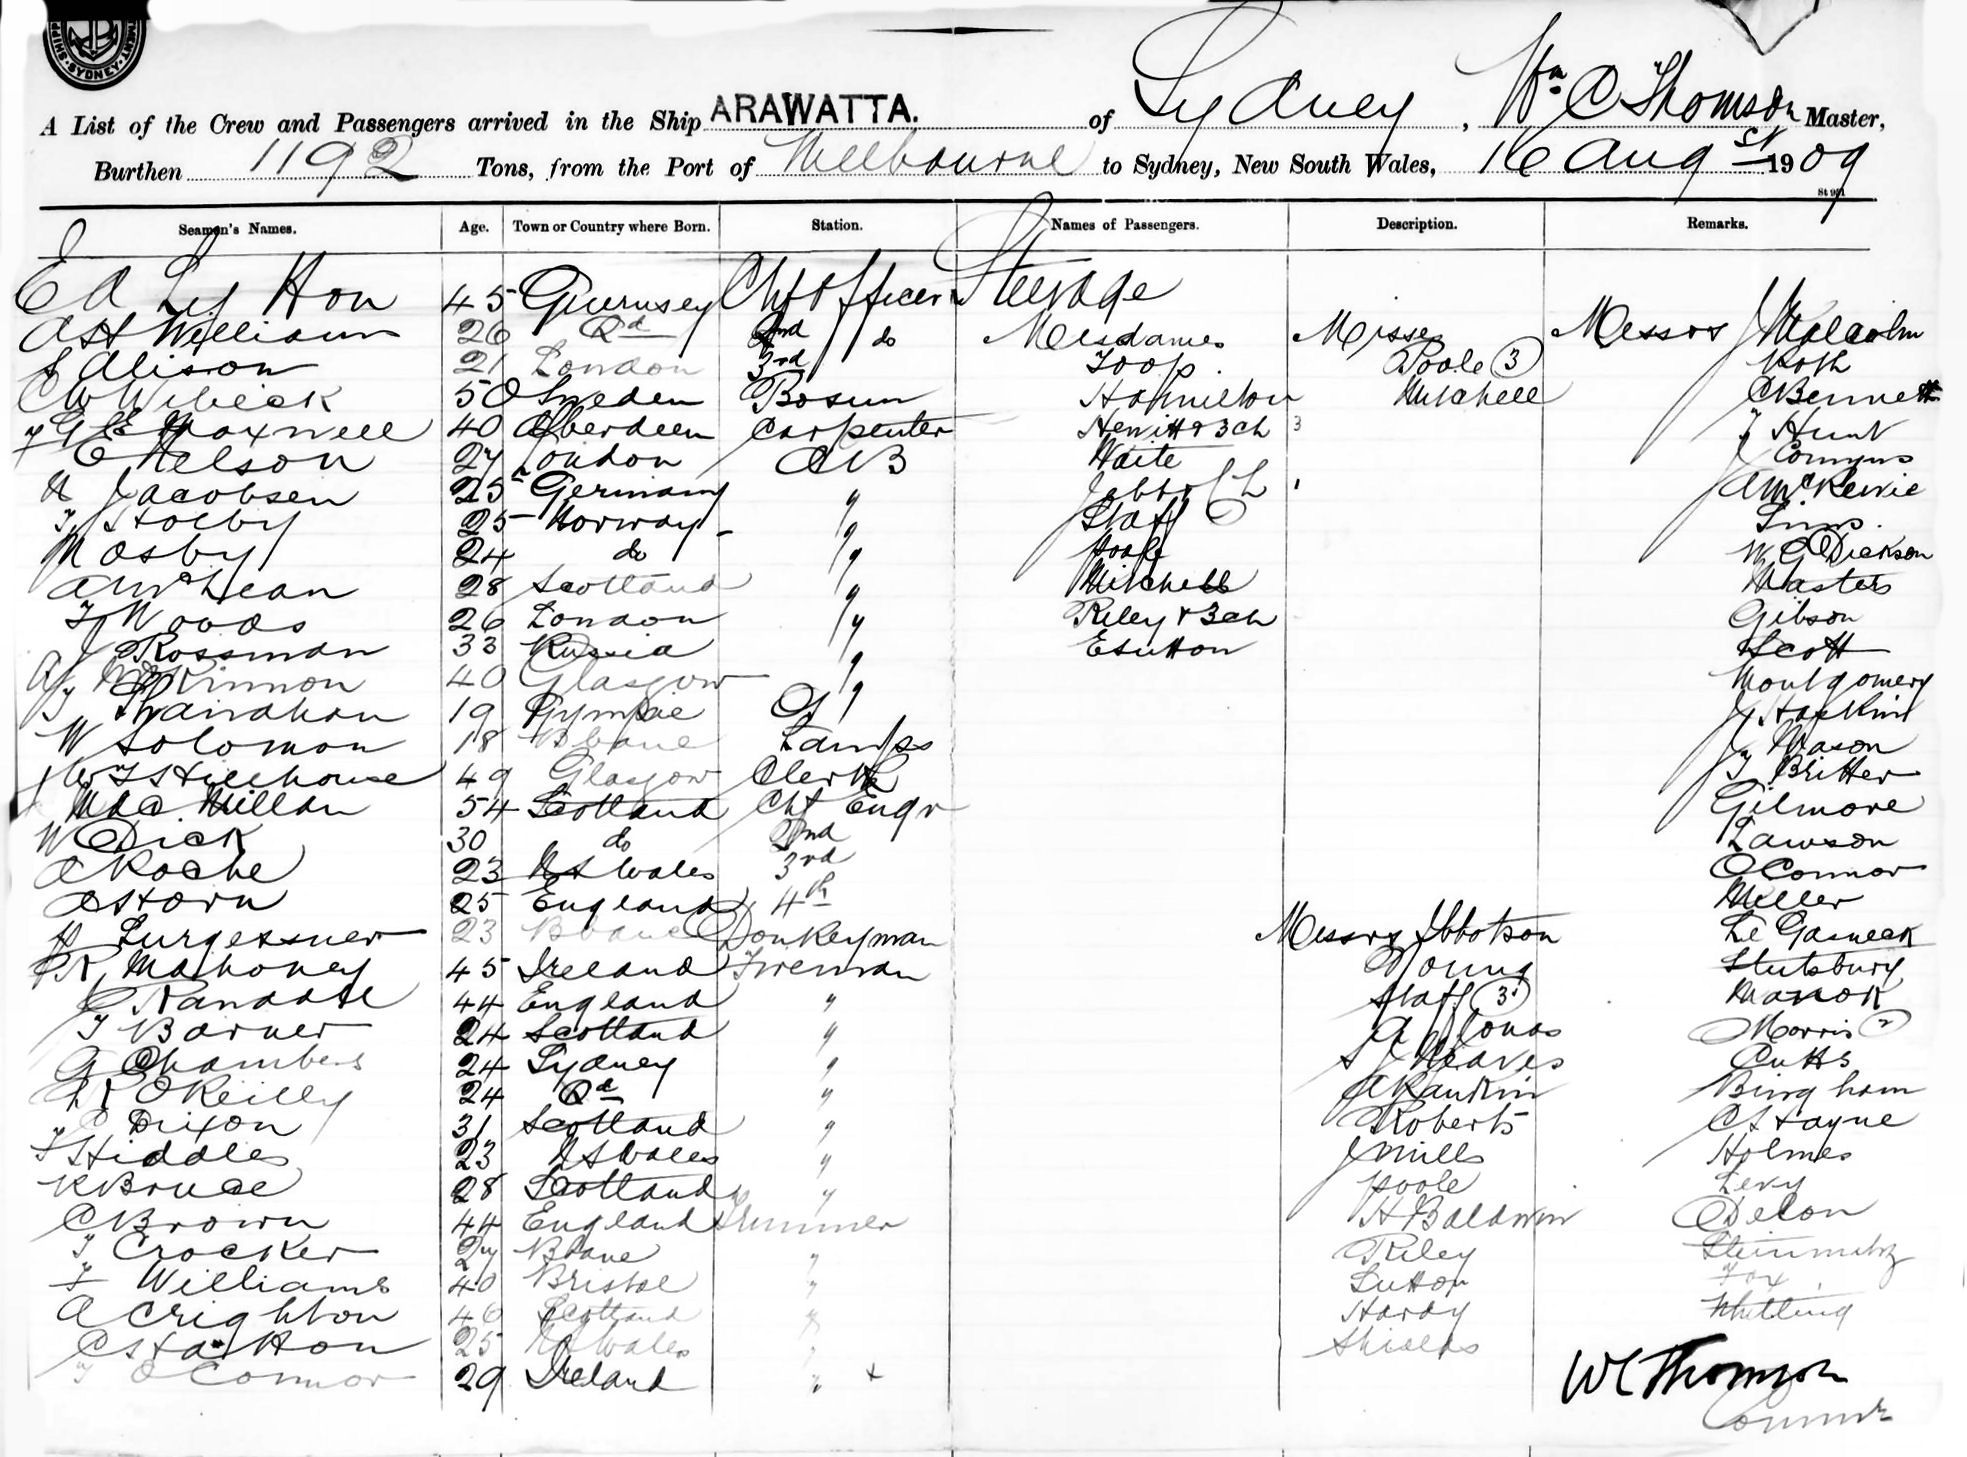 SYDNEY
A List of the Crew and Passengers arrived in the Ship ARAWATTA. of Sydney, Wm C Thomson Master,
Burthen 1192 Tons, from the Port of Melbourne to Sydney, New South Wales, 16 Augst 1909
Seamen's Names. Age. Town or Country where Born. Station. Names of Passengers. Description. Remarks.
45 Guernsey Chf Officer Steerage
A H William 26 Do 2nd do Mesdames Misses Messrs J Malcolm
S Alison 21 London 3rd Toop. Poole (3) Roth
C W Wibeck 50 Sweden Bosun Hamilton Mitchell C Bennett
G E Maxwell 40 Aberdeen Carpenter Hewitt & 3 ch 3 T Hunt
E Nelson 27 London AB Waite J Comyns
H Jacobsen 25 Germany " A McKenzie
T Holby 25 Norway " Staff Sims.
M Osby 24 do " Poole W G Dickson
A McLean 28 Scotland " Mitchell Masters
T Woods 26 London " Riley & 3 ch Gibson
J Rossman 33 Russia " E Sutton Scott
McKinnon 40 Glasgow " Montgomery
T Hanrahan 19 Gympie OS J Hoskins
W Solomon 18 Bbane Lamps J Mason
W T S Hillhouse 49 Glasgow Clerk T Britter
Mac Millan 54 Scotland Chf Engr Gilmore
W Dick 30 do 2nd Lawson
A Roche 23 N S Wales 3rd O Connor
A Horn 25 England 4th Miller
H Surgessner 23 Bbane Donkeyman Messrs Ibbotson
R Mahoney 45 Ireland Fireman Young Stutsbury
C Randall 44 England " Staff (3)
T Barner 24 Scotland " A Jonas Morris (2)
G Chambers 24 Sydney " S J Neaves Cutts
O'Reilly 24 Do " A Rankin Bingham
C Dixon 31 Scotland " Roberts C Stayne
T Hiddles 23 N S Wales " J Mills Holmes
R Bruce 28 Scotland " Poole Levy
C Brown 44 England Trimmer H Baldwin
T Crocker 27 Bbane " Riley Steinmetz
T Williams 40 Bristol " Sutton Fox
A Crighton 46 Scotland " Hardy Whitling
C Statton 25 N S Wales " Shields
T O Connor 29 Ireland " + W C Thomson